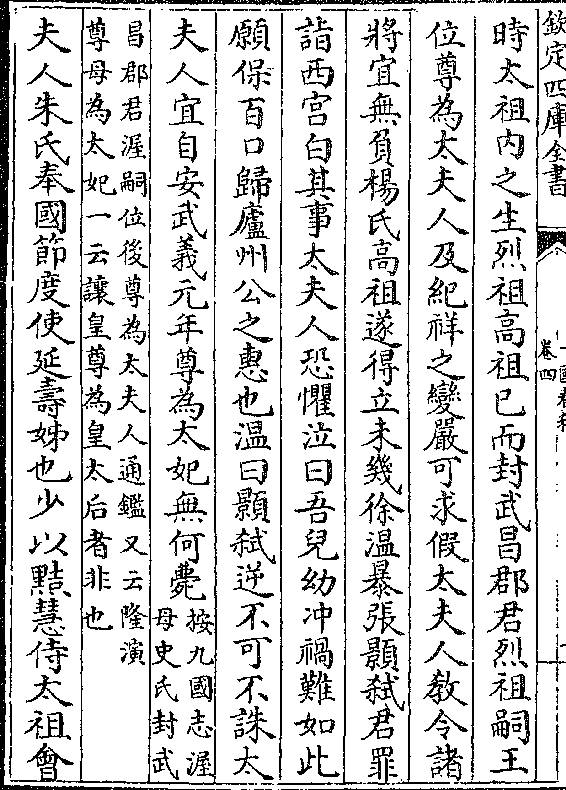 欽定四庫全書
卷四
時太祖内之生烈祖高祖已而封武昌郡君烈祖嗣王
位尊為太夫人及紀祥之變嚴可求假太夫人敎令諸
將宜無負楊氏高祖遂得立未幾徐温暴張顥弑君罪
詣西宫白其事太夫人恐懼泣曰吾兒幼冲禍難如此
願保百口歸廬州公之惠也温曰顥弑逆不可不誅太
夫人宜自安武義元年尊為太妃無何薨
按九國志渥
母史氏封武
昌郡君渥嗣位後尊為太夫人通鑑又云隆演
尊母為太妃一云讓皇尊為皇太后者非也
夫人朱氏奉國節度使延壽姊也少以黠慧侍太祖會